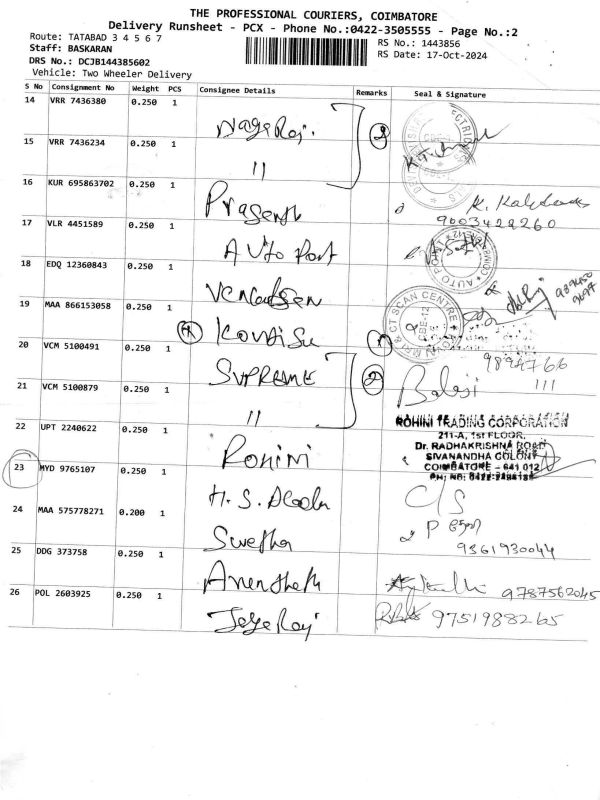 THE PROFESSIONAL COURIERS, COIMBATORE
Delivery Runsheet - PCX - Phone No.:0422-3505555 - Page No.:2
Route: TATABAD 3 4 5 6 7
RS No.: 1443856
Staff: BASKARAN
RS Date: 17-Oct-2024
DRS No.: DCJB144385602
Vehicle: Two Wheeler Delivery
S No Consignment No Weight PCS Consignee Details Remarks Seal & Signature
14 VRR 7436380 0.250 1
Nage Raj. 2
15 VRR 7436234 0.250 1
11
16 KUR 695863702 0.250 1
Prasenth
K.
9003429260
17 VLR 4451589 0.250 1
Auto Port
AUTO POINT
18 EDQ 12360843 0.250 1
19 MAA 866153058 0.250 1
& CT SCAN CENTRE
CBE-12
20 VCM 5100491 0.250 1
SUPREME 2
Balaji
21 VCM 5100879 0.250 1
11
22 UPT 2240622 0.250 1
Rohini
ROHINI TRADING CORPORATION
211-A, 1st FLOOR,
Dr. RADHAKRISHNA ROAD
SIVANANDHA COLONY
COIMBATORE - 641 012
23 MYD 9765107 0.250 1
H. S.
C/S
24 MAA 575778271 0.200 1
Swetha
P
9361930044
25 DDG 373758 0.250 1
9787562045
26 POL 2603925 0.250 1
Jeye Raj
9751988265